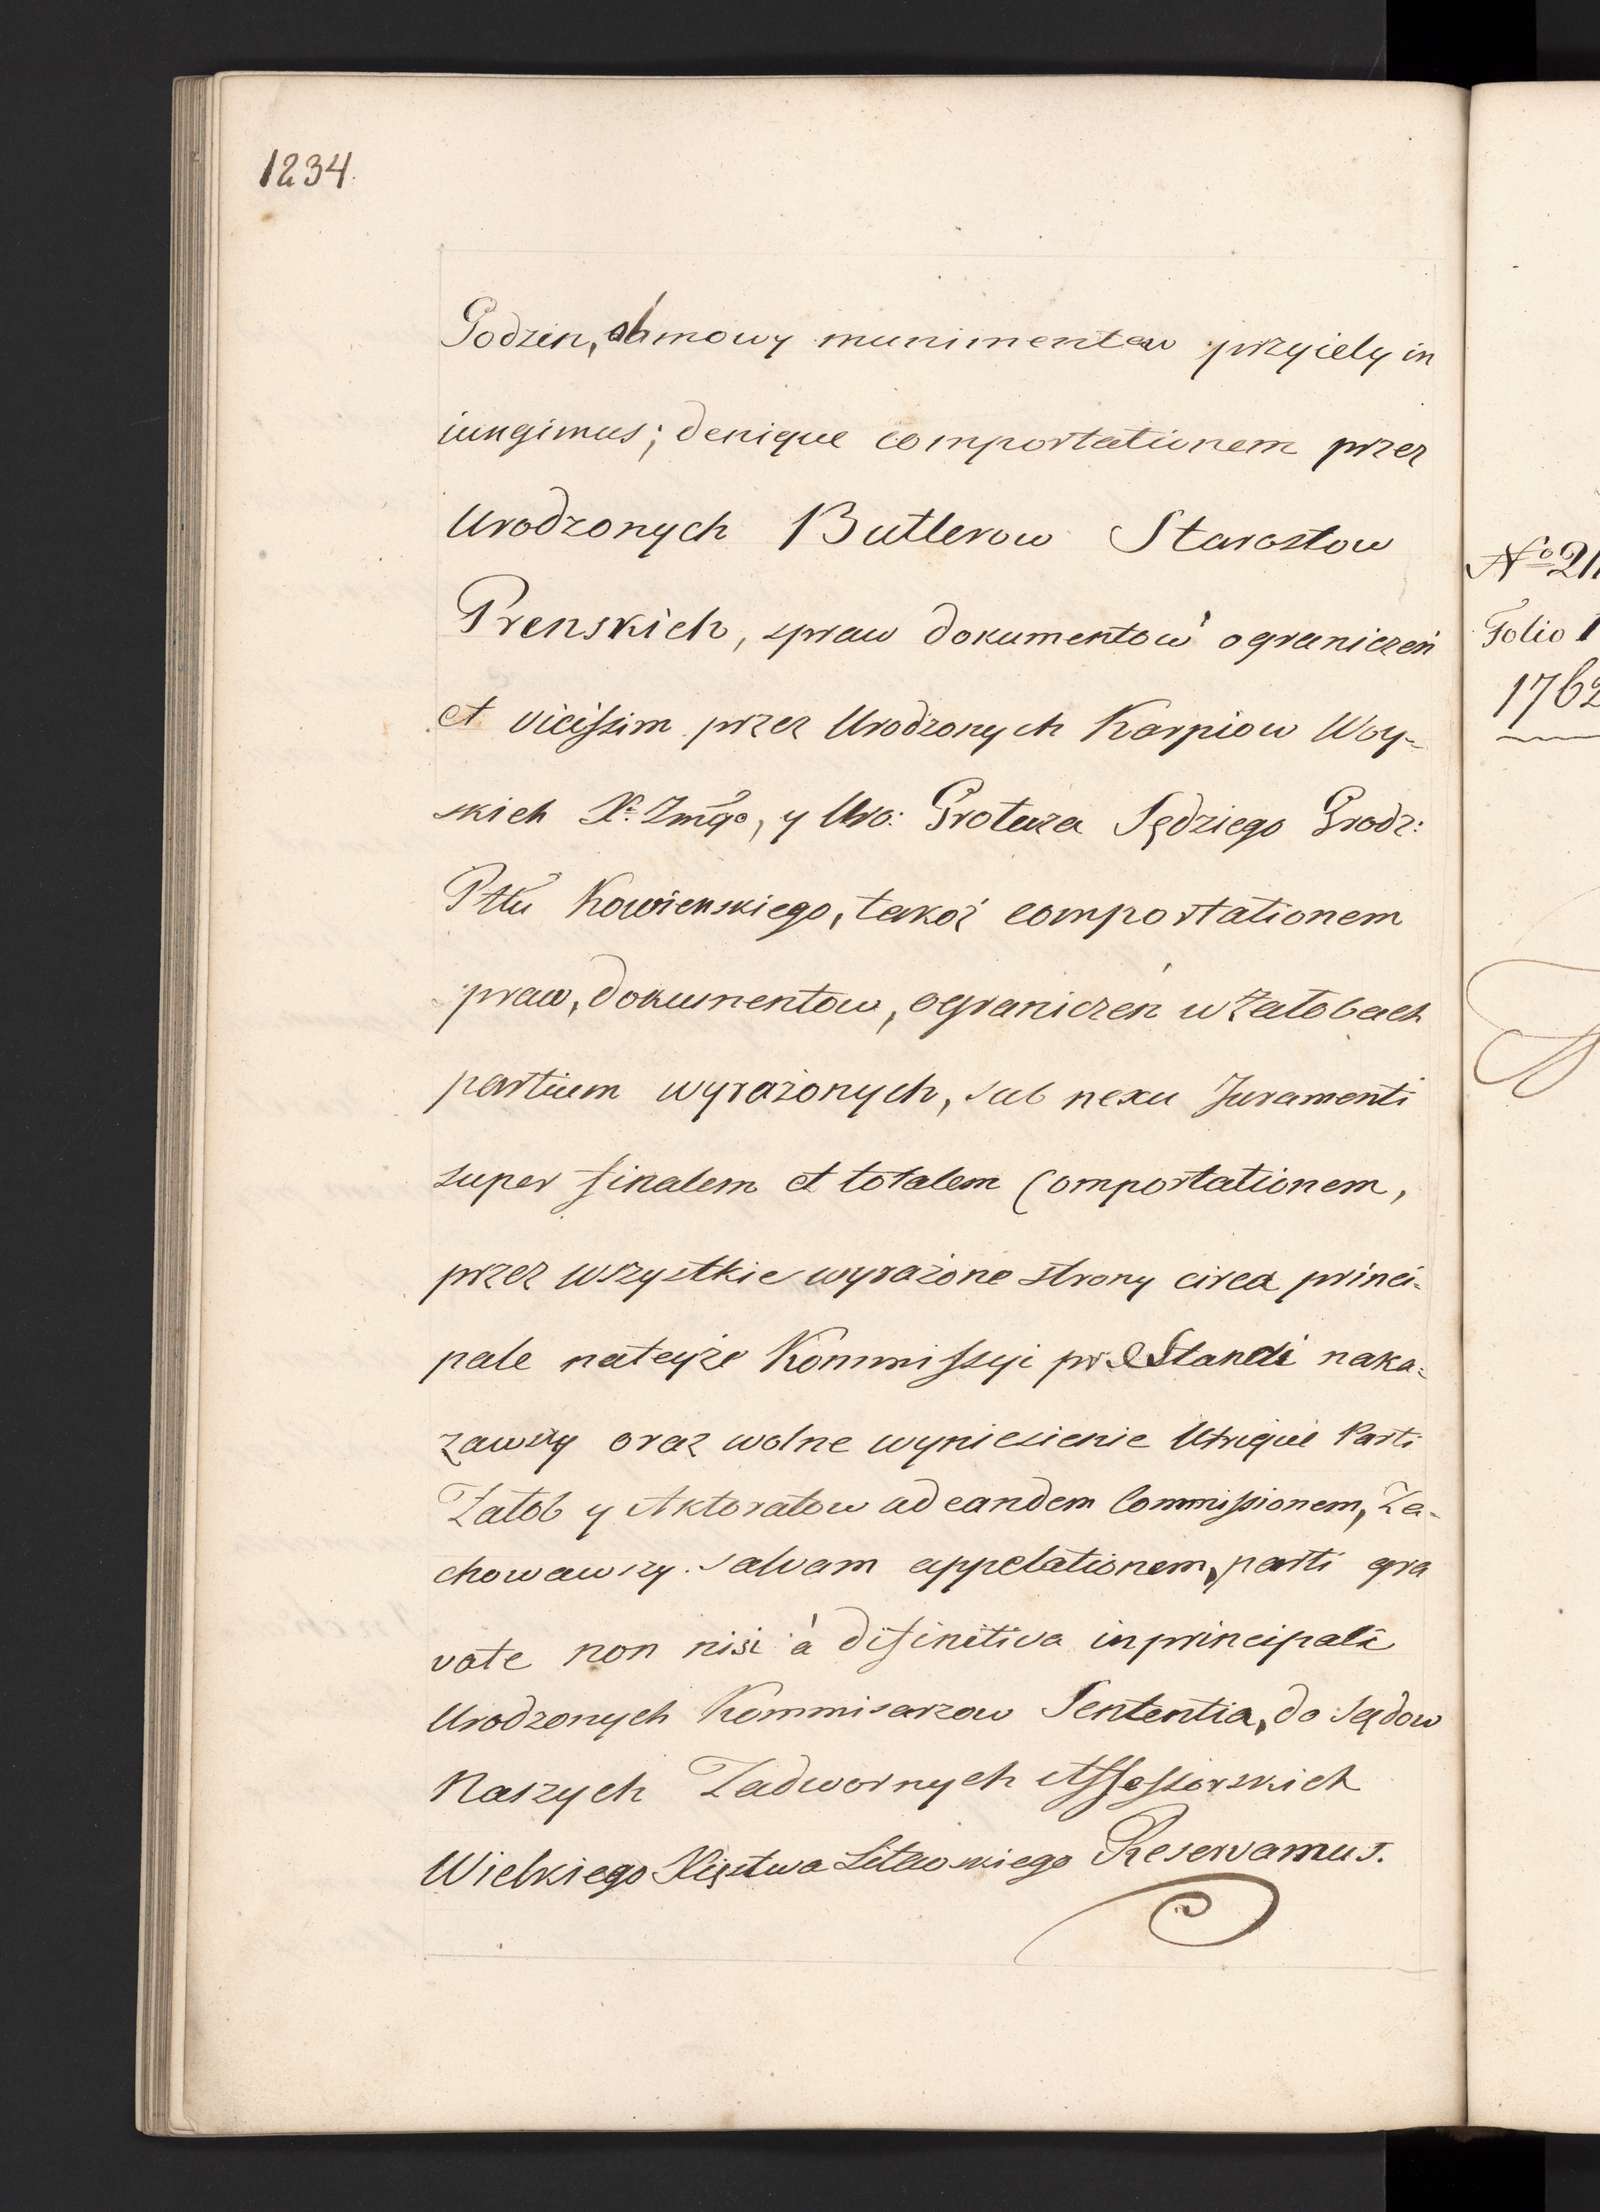 1234.
Godzin, obmowy munimentow przyiely in
iungimus; denique comportationem przez
Urodzonych Butlerow Starostow
Prenskich, spraw dokumentow ograniczeń
et vicissim przez Urodzonych Karpiow Woy-
skich X: Zmgo, y Uro: Protasza Sędziego Grodz:
Pttu Kowienskiego, takoż comportationem
praw, dokumentow, ograniczeń w Załobach
partium wyrażonych, sub nexu Juramenti
super finalem et totalem Comportationem,
przez wszystkie wyrażone strony circa princi-
pale nateyże Kommissyi præstandi naka-
zawszy oraz wolne wyniesienie Utrique Parti
Załob y Aktoratow ad eandem Commissionem, Za-
chowawszy salvam appelationem, parti gra
vate non nisi à difinitiva in principali
Urodzonych Kommisarzow Sententia, do Sądow
Naszych Zadwornych Assessorskich
Wielkiego Xięstwa Litewskiego Reservamus.
No 21
Folio 1
1762